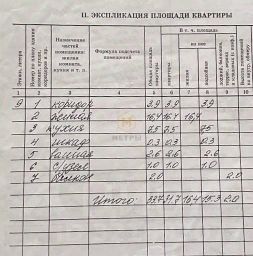 II. ЭКСПЛИКАЦИЯ ПЛОЩАДИ КВАРТИРЫ
Этаж, литера
Назначение частей помещения: жилая кухня и т. п.
Формула подсчета помещений
Общая площадь квартиры
В т. ч. площадь
из нее
жилая
подсобная
1 2 3 4 5 6 7 8 9 10
9 1 коридор 3,9 3,9 3,9
2 жилая 16,4 16,4 16,4
3 кухня 7,5 7,5 7,5
4 шкаф 0.3 0.3 0.3
5 ванная 2.6 2.6 2.6
6 с/узел 1.0 1.0 1.0
7 балкон 2.0 2.0
МЕТРЫ
Итого: 33.7 31.7 16.4 15.3 2.0